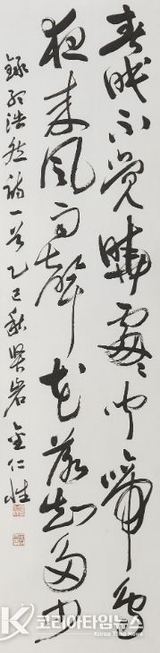 春眠不覺曉處々聞啼鳥
夜来風雨聲花落知多少
錄孟浩然詩一首乙巳秋 岩 金仁性
코리아타임뉴스
Korea Time News